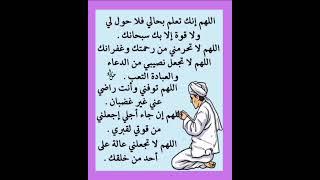 اللهم إنك تعلم بحالي فلا حول لي
ولا قوة إلا بك سبحانك .
اللهم لا تحرمني من رحمتك وغفرانك
اللهم لا تجعل نصيبي من الدعاء
والعبادة التعب .
اللهم توفني وأنت راضي
عني غير غضبان .
اللهم إن جاء أجلي إجعلني
من قوتي لقبري .
اللهم لا تجعلني عالة على
أحد من خلقك .